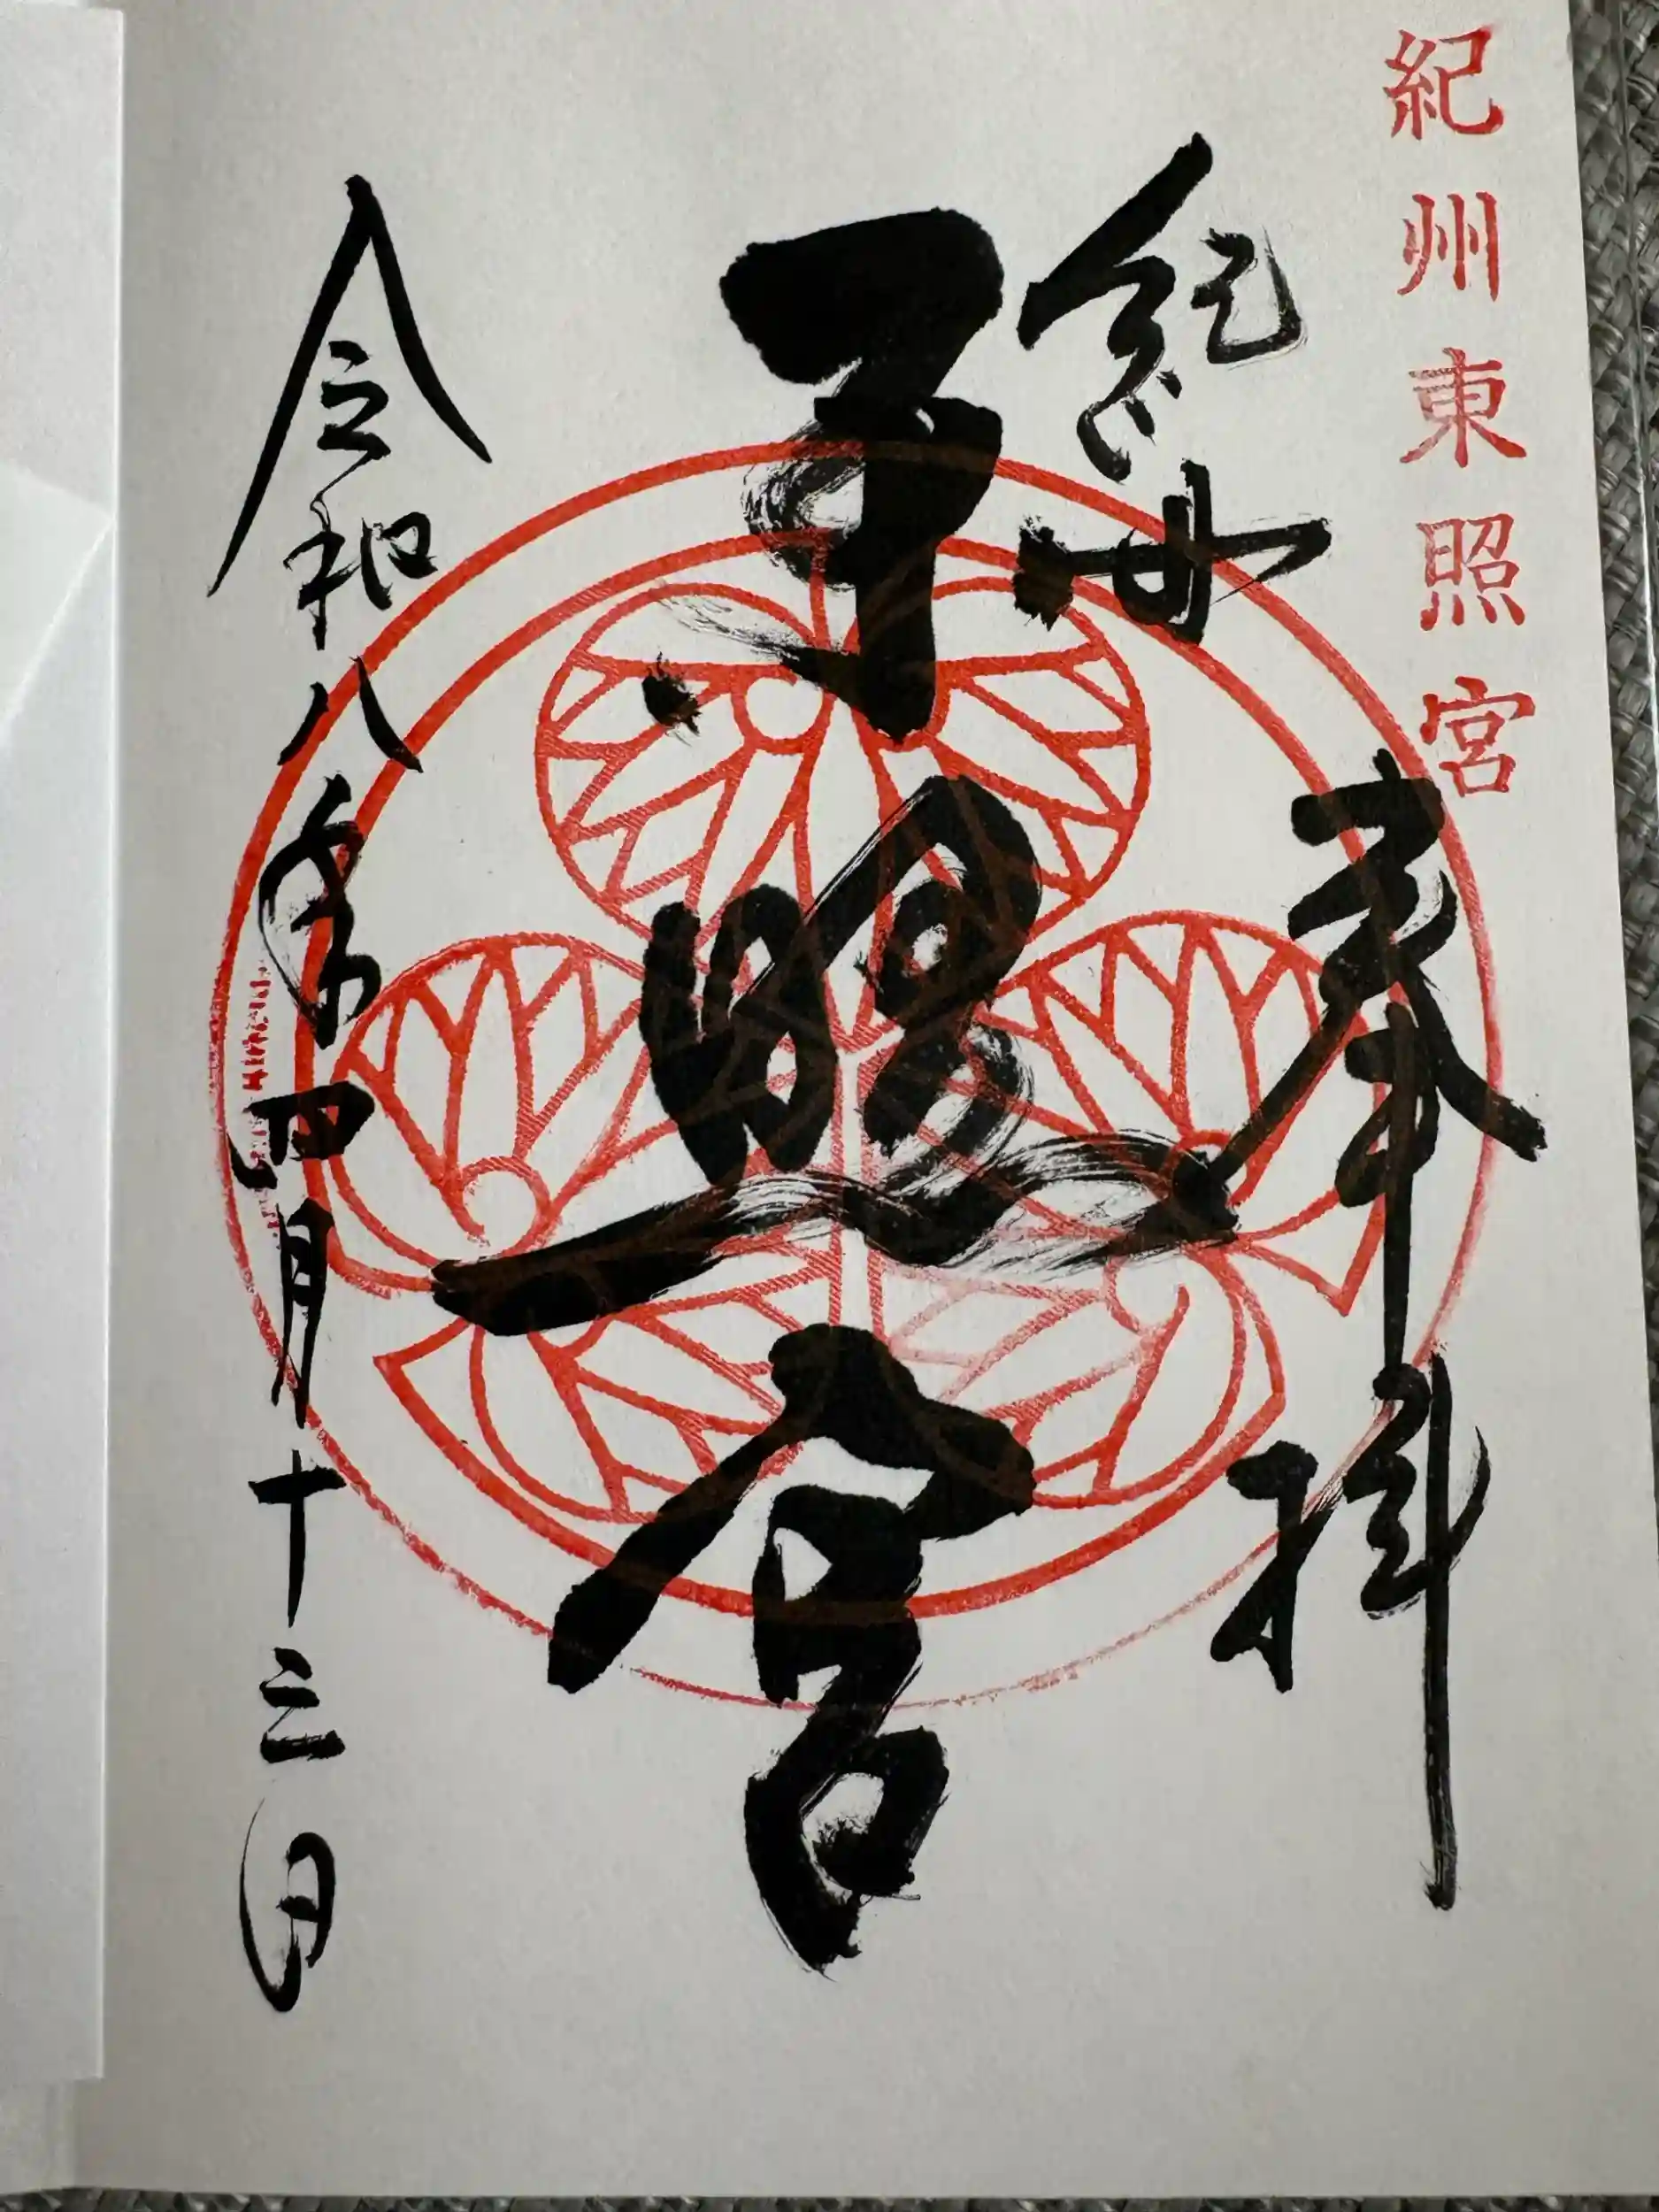 紀州東照宮
奉拝
紀州
東照宮
令和八年四月十三日